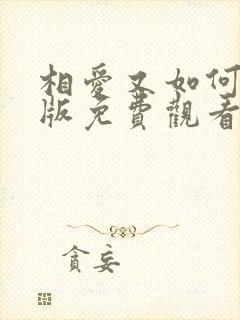 相愛又如何
版免費觀看
貪妄